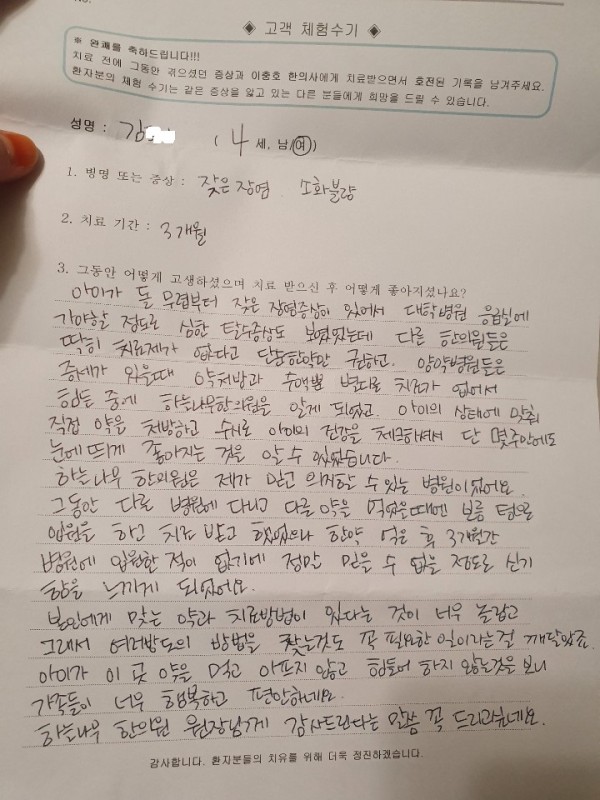 No.
◈ 고객 체험수기 ◈
※ 완쾌를 축하드립니다!!!
치료 전에 그동안 겪으셨던 증상과 이충호 한의사에게 치료받으면서 호전된 기록을 남겨주세요.
환자분의 체험 수기는 같은 증상을 앓고 있는 다른 분들에게 희망을 드릴 수 있습니다.
성명 : 김 ( 4 세, 남/여)
1. 병명 또는 증상 : 잦은 장염 소화불량
2. 치료 기간 : 3개월
3. 그동안 어떻게 고생하셨으며 치료 받으신 후 어떻게 좋아지셨나요?
아이가 돌 무렵부터 잦은 장염증상이 있어서 대학병원 응급실에
가야할 정도로 심한 탈수증상도 보였었는데 다른 한의원들은
딱히 치료제가 없다고 단순한약만 권하고. 양약병원들은
증세가 있을때 약처방과 수액뿐 별다른 치료가 없어서
힘든 중에 하늘나무한의원을 알게 되었고. 아이의 상태에 맞춰
직접 약을 처방하고 수시로 아이의 건강을 체크하셔서 단 몇주만에도
눈에 띄게 좋아지는 것을 알 수 있었습니다.
하늘나무 한의원은 제가 믿고 의지할 수 있는 병원이었어요.
그동안 다른 병원에 다니고 다른 약을 먹었을때엔 보름 텀으로
입원을 하고 치료 받고 했었으나 한약 먹은 후 3개월간
병원에 입원한 적이 없기에 정말 믿을 수 없을 정도로 신기
함을 느끼게 되었어요.
본인에게 맞는 약과 치료방법이 있다는 것이 너무 놀랍고
그래서 여러방도의 방법을 찾는것도 꼭 필요한 일이라는걸 깨달았죠.
아이가 이 곳 약을 먹고 아프지 않고 힘들어 하지 않는것을 보니
가족들이 너무 행복하고 편안하네요.
하늘나무 한의원 원장님께 감사드린다는 말씀 꼭 드리고싶네요.
감사합니다. 환자분들의 치유를 위해 더욱 정진하겠습니다.